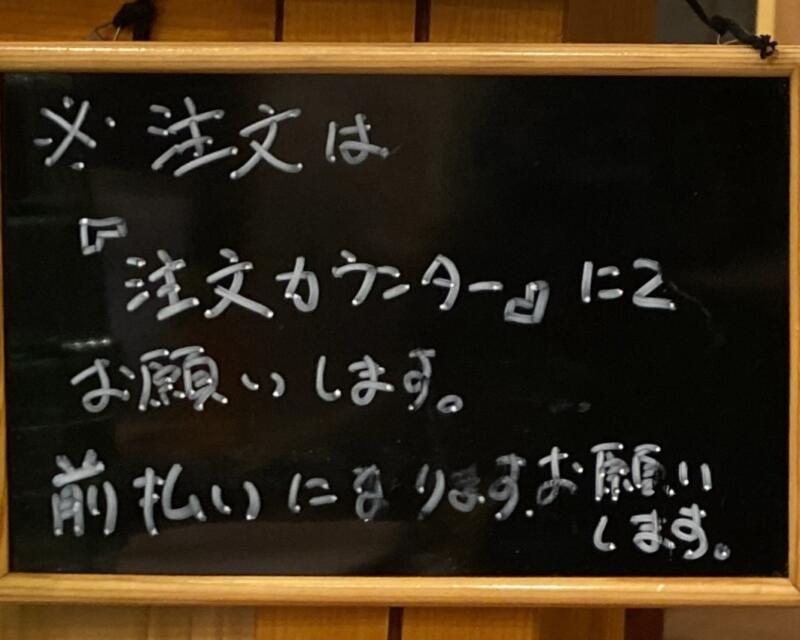 ※注文は
『注文カウンター』にて
お願いします。
前払いになります。お願い
します。